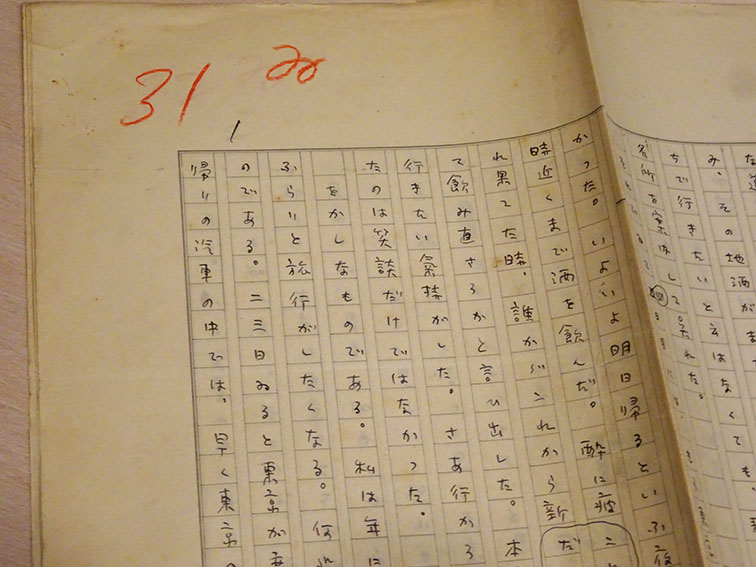 31 み
1
み、その地酒がま
ちで行きたいと云はなくても、
かつた。いよいよ明日帰るといふ夜
時近くまで酒を飲んだ。酔に疲
れ果てた時、誰かゞこれから新
て飲み直さうかと言ひ出した。本
行きたい氣持がした。さあ行かう
たのは笑談だけではなかつた。
をかしなものである。私は年に
ふらりと旅行がしたくなる。何
のである。二三日ゐると東京が
帰りの汽車の中では、早く東京の